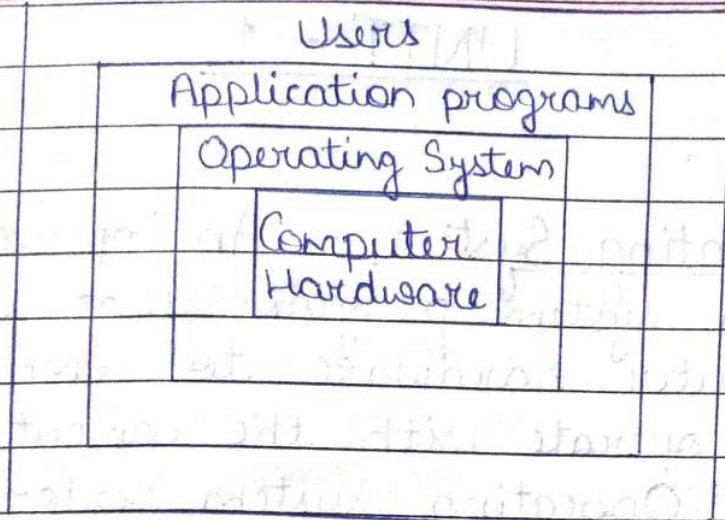 Users
Application programs
Operating System
Computer
Hardware